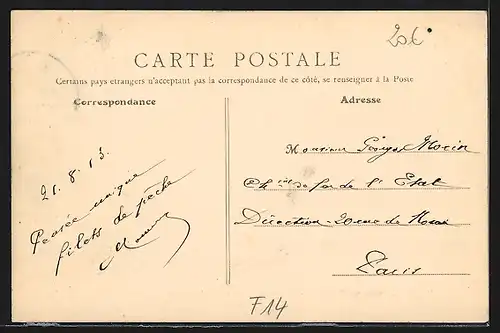 206
CARTE POSTALE
Certains pays étrangers n'acceptant pas la correspondance de ce côté, se renseigner à la Poste
Correspondance
Adresse
21. 8. 13.
Pensée unique
filets de pêche
Monsieur Georges Morin
Ch ins de fer de l'Etat
Direction - 20 rue de Rome
Paris
F14